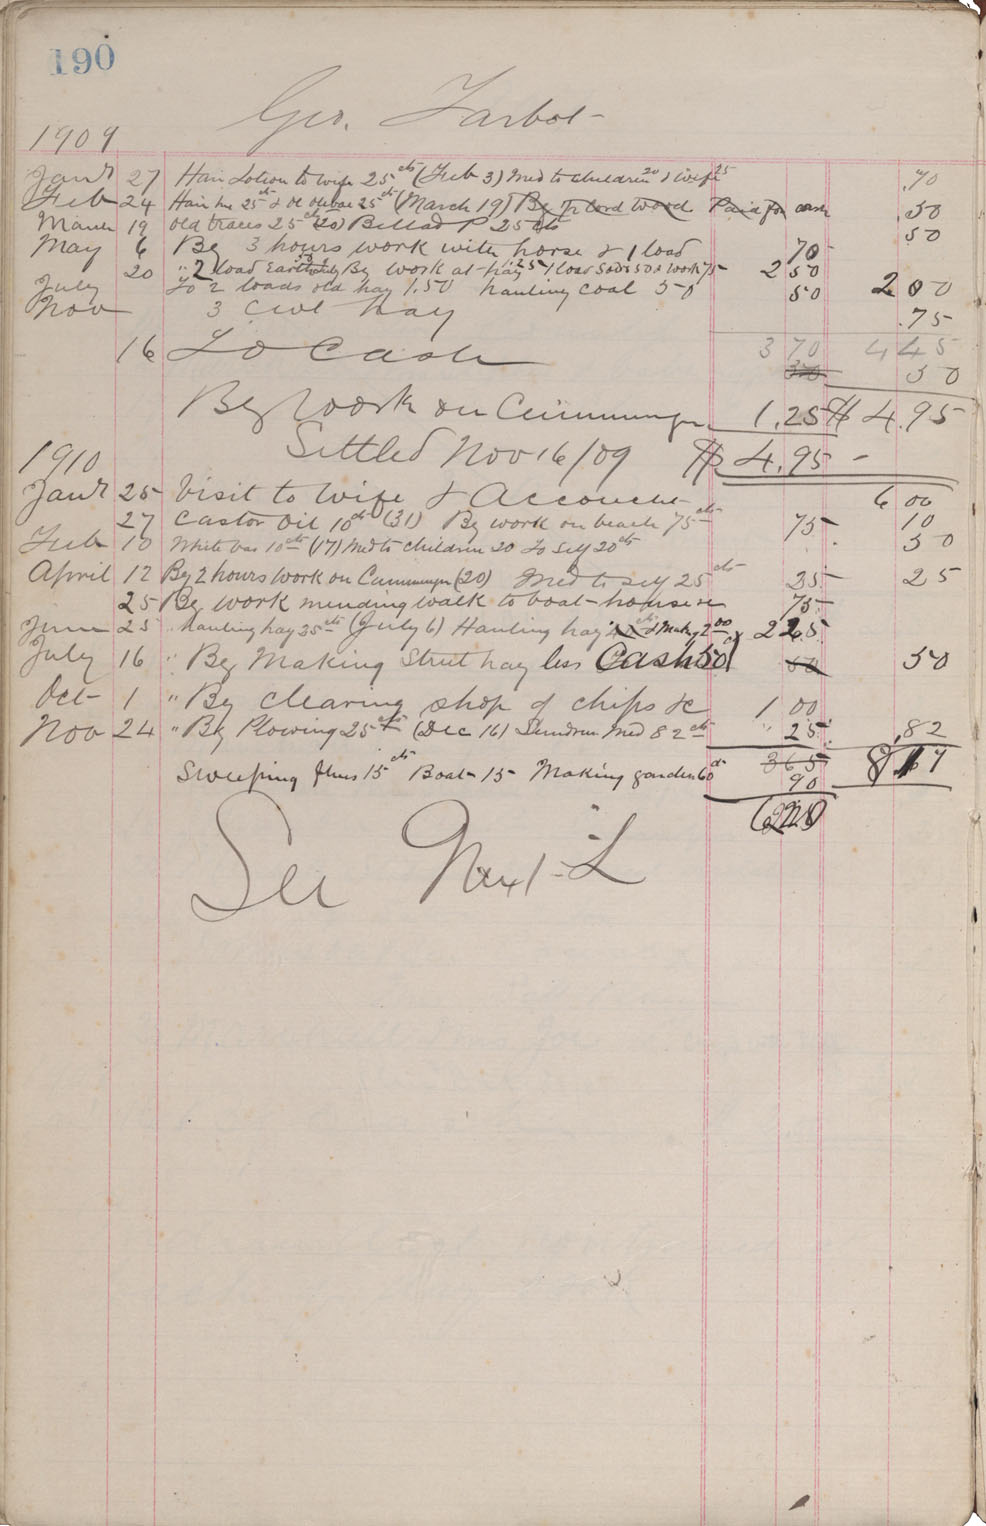 190
Geo. Tarbot
1909
Jany 27 Hair Lotion to wife 25cts (Feb 3) Med to children 20 & wife 25 .70
Feb 24 Hair 25cts & 25cts (March 19) By 1/2 cord wood Paid for cash .50
March 19 old traces 25cts (20) Bellad P 25cts 50
May 6 By 3 hours work with horse & 1 load 70
20 " 2 load Earth By work at hay 25 1 load Sods 50 & work 75 2 50
July To 2 loads old hay 1.50 hauling coal 50 50 2 00
Nov 3 cwt hay .75
16 To Cash 3 70 4 45
50 50
By work on Cummunger 1.25 $4.95
Settled Nov 16/09 $4.95 -
1910
Jany 25 Visit to wife & Accouche 6 00
27 Castor Oil 10cts (31) By work on beach 75cts 75 10
Feb 10 White 10cts (17) Med to children 20 To Self 20cts 50
April 12 By 2 hours work on Cummunger (20) Med to self 25cts 25 25
25 By work mending walk to boat-house 75
June 25 " hauling hay 35cts (July 6) Hauling hay & Making 2.00 2 25
July 16 " By Making Street hay less Cash 50 50 50
Oct 1 " By clearing shop of chips &c 1 00
Nov 24 " By Plowing 25cts (Dec 16) Sundries Med 82cts " 25 .82
Sweeping flues 15cts Boat 15 Making garden 60cts 365 8.17
90
See Next L